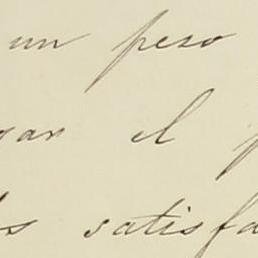 un peso
gan el p
os satisfa